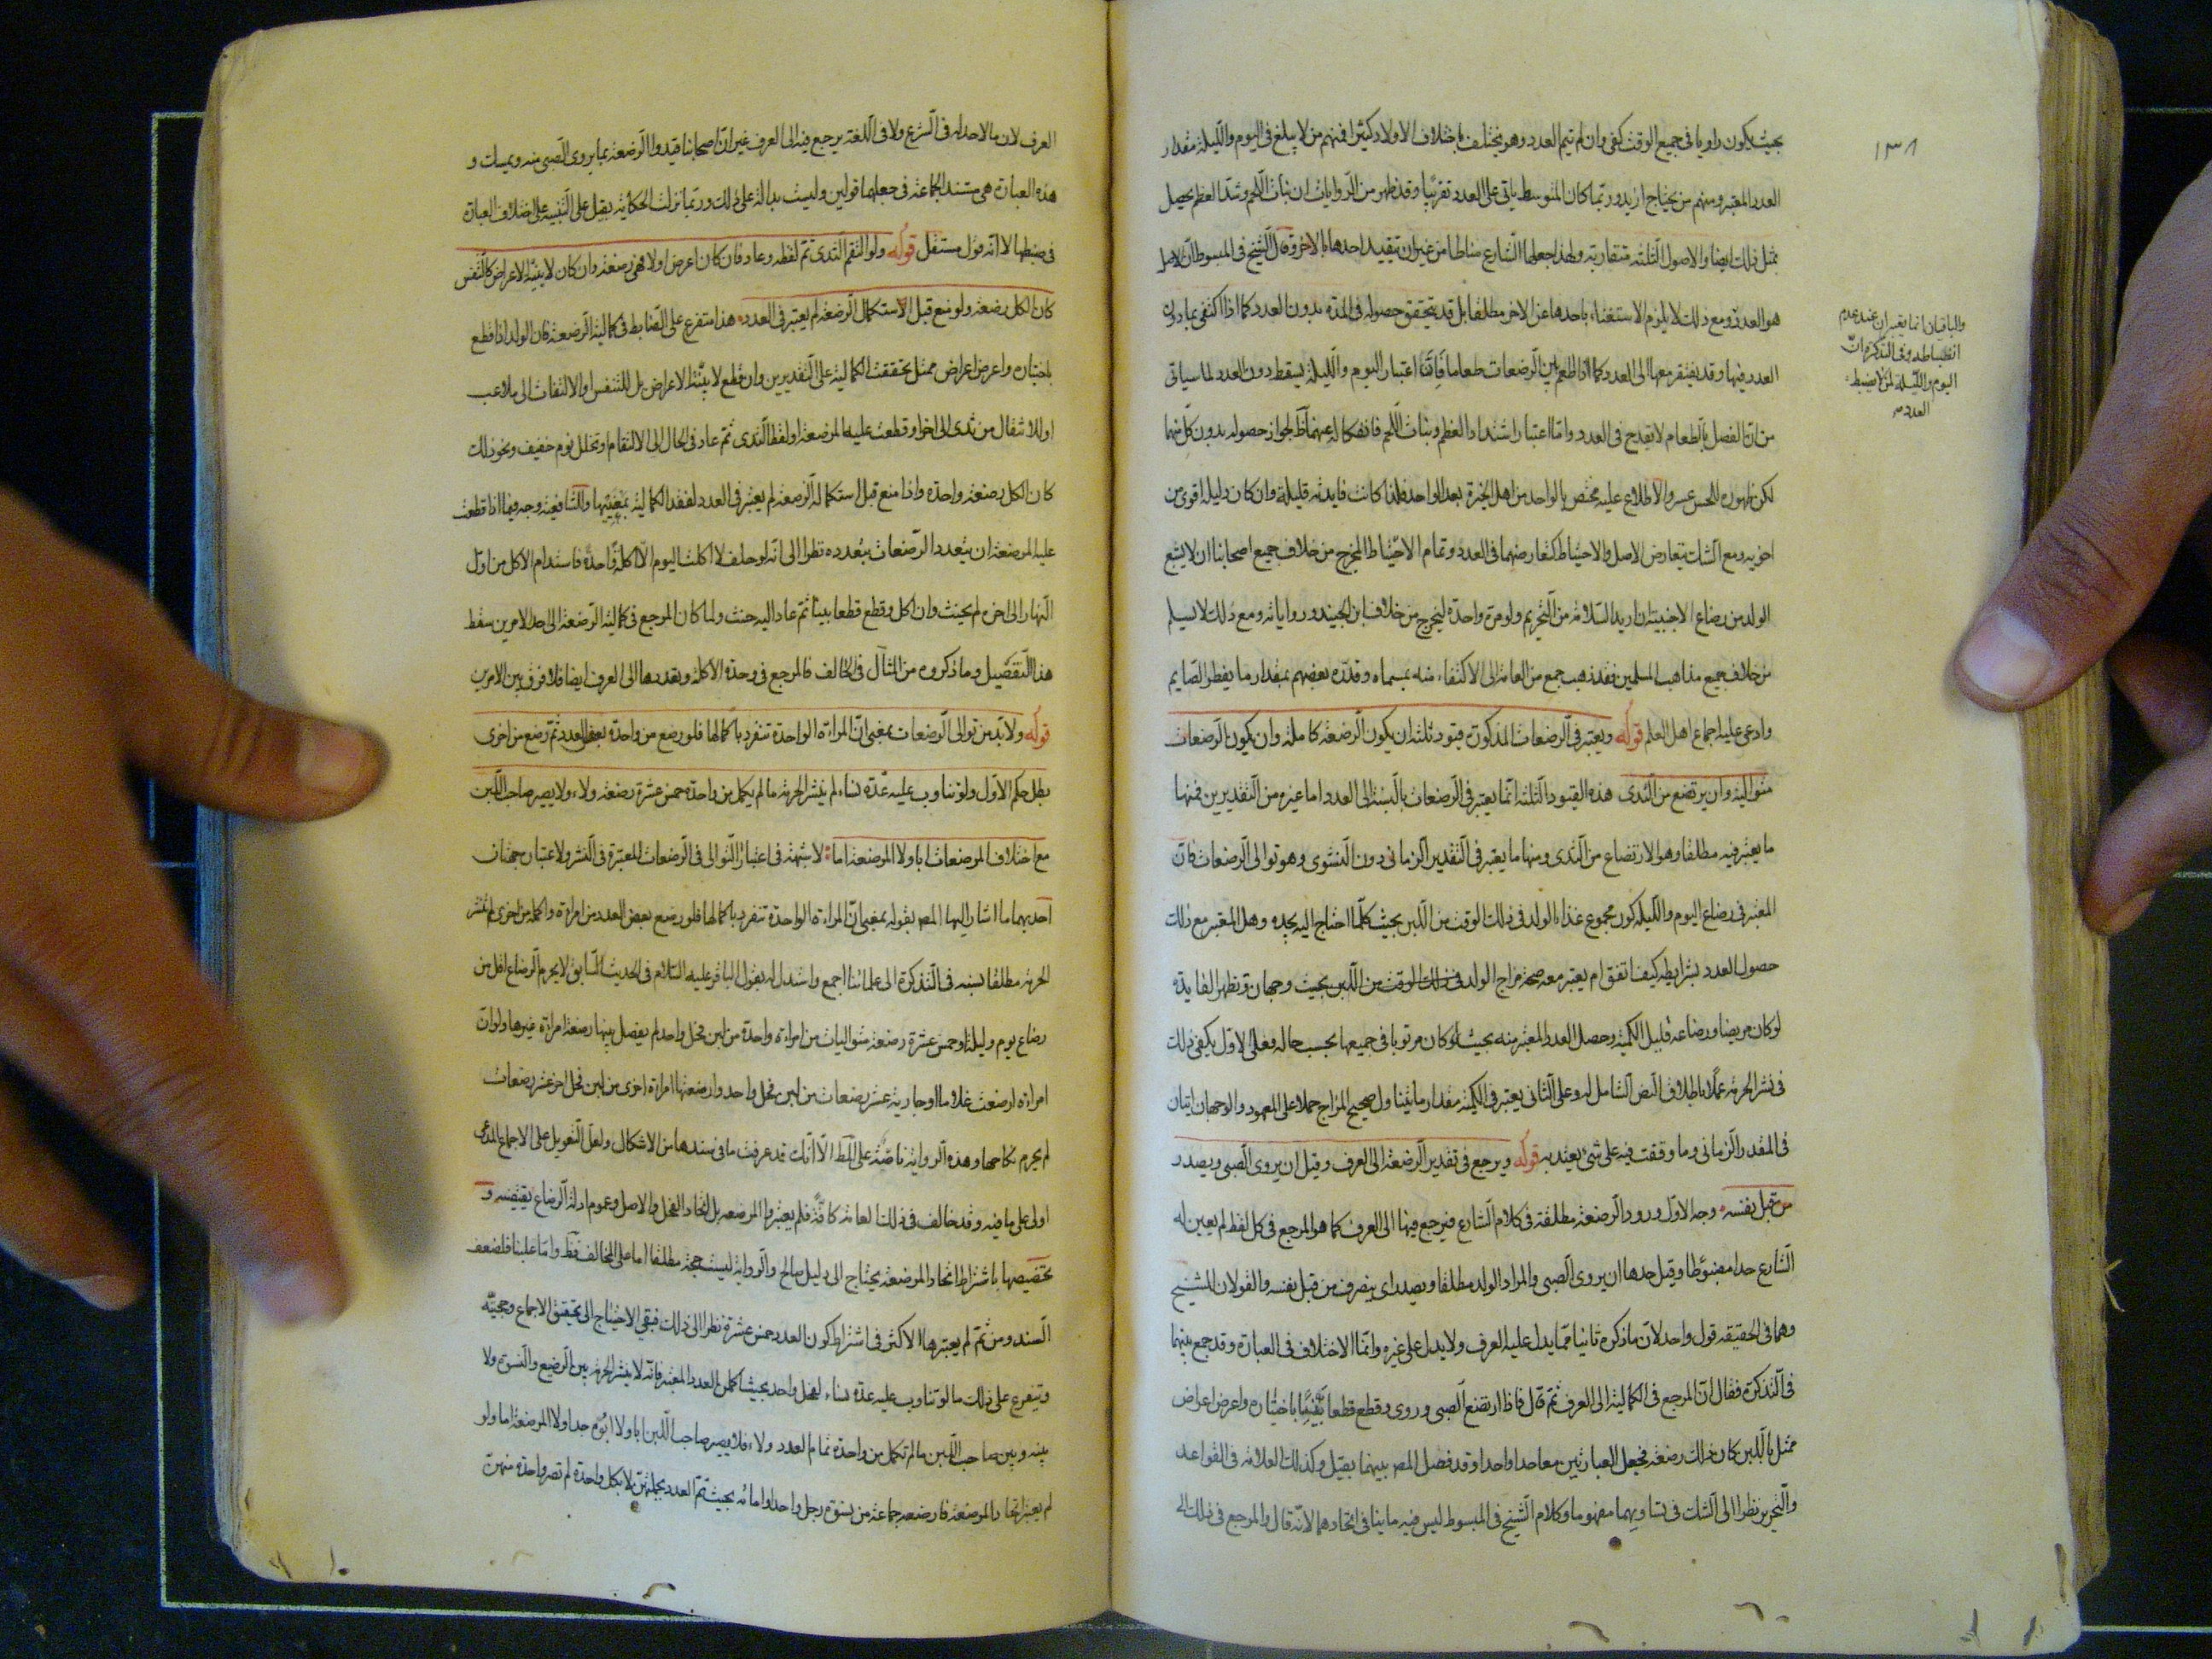 ١٣٨
بحيث يكون راويا في جميع الوقت كفى وان لم يتم العدد وهو يختلف باختلاف الاولاد كثيرا فمنهم من لا يبلغ في اليوم والليلة مقدار
العدد المعتبر ومنهم من يحتاج ازيد وربما كان المتوسط ياتي على العدد تقريبا وقد ظهر من الروايات ان نبات اللحم وشد العظم يحصل
بمثل ذلك ايضا والاصول الثلثة متقاربة ولهذا جعلها الشارع مناطا من غير ان يتقيد احدها بالاخر وقال الشيخ في المبسوط ان الاصل
هو العدد ومع ذلك لا يلزم الاستغناء باحدها عن الاخر مطلقا بل قد يتحقق حصوله في المدة بدون العدد كما اذا اكتفى بما دون
العدد فيها وقد يفتقر معها الى العدد كما اذا اطعم بين الرضعات طعاما فان اعتبار اليوم والليلة يسقط دون العدد لما سياتي
من ان الفصل بالطعام لا يقدح في العدد واما اعتبار اشتداد العظم ونبات اللحم فانفكاكه عنهما ظ لجواز حصوله بدون كل منهما
لكن ظهوره للحس عسر والاطلاع عليه مختص بالواحد من اهل الخبرة بعد الواحد فلذا كانت فايدته قليلة وان كان دليله اقوى من
اخويه ومع الشك يتعارض الاصل والاحتياط كتعارضهما في العدد وتمام الاحتياط المخرج من خلاف جميع اصحابنا ان لا يشبع
الولد من رضاع الاجنبية ان اريد السلامة من التحريم ولو مرة واحدة ليخرج من خلاف ابن الجنيد ورواياته ومع ذلك لا يسلم
من خلاف جميع مذاهب المسلمين فقد ذهب جمع من العامة الى الاكتفاء منه بمسماه وقدره بعضهم بمقدار ما يفطر الصايم
وادعى عليه اجماع اهل العلم قوله ويعتبر في الرضعات المذكورة قيود ثلثة ان يكون الرضعة كاملة وان يكون الرضعات
متوالية وان يرتضع من الثدى هذه القيود الثلثة انما يعتبر في الرضعات بالنسبة الى العدد اما غيره من التقديرين فمنها
ما يعتبر فيه مطلقا وهو الارتضاع من الثدى ومنها ما يعتبر في التقدير الزماني دون النشوى وهو توالى الرضعات فان
المعتبر في رضاع اليوم والليلة كون مجموع غذاء الولد في ذلك الوقت من اللبن بحيث كلما احتاج اليه يجده وهل المعتبر مع ذلك
حصول العدد بشرايطه كيف اتفق ام يعتبر معه صحة مزاج الولد في ذلك الوقت من اللبن بحيث وجهان وتظهر الفايدة
لو كان مريضا ورضاعه قليل الكمية وحصل العدد المعتبر منه بحيث لو كان مرتويا في جميعها بحسب حاله فعلى الاول يكفي ذلك
في نشر الحرمة عملا باطلاق النص الشامل له وعلى الثاني يعتبر في الكمية مقدار ما يتناول صحيح المزاج حملا على المعهود والوجهان اتيان
في المقدر الزماني وما وقفت فيه على شيء يعتد به قوله ويرجع في تقدير الرضعة الى العرف وقيل ان يروى الصبي ويصدر
من قبل نفسه وجه الاول ورود الرضعة مطلقة في كلام الشارع فيرجع فيها الى العرف كما هو المرجع في كل لفظ لم يعين له
الشارع حدا مضبوطا وقيل حدها ان يروى الصبي والمراد الولد مطلقا ويصدر اي ينصرف من قبل نفسه والقولان للشيخ
وهما في الحقيقة قول واحد لان ما ذكره ثانيا مما يدل عليه العرف ولا يدل على غيره وانما الاختلاف في العبارة وقد جمع بينهما
في التذكرة فقال ان المرجع في الكمالية الى العرف ثم قال فاذا ارتضع الصبي وروى وقطع قطعا بينا باختياره واعرض اعراض
ممتل باللبن كان ذلك رضعة فجعل العبارتين معا حدا واحدا وقد فصل المصـ بينهما بقيل وكذلك العلامة في القواعد
والتحرير نظرا الى الشك في تساويهما مفهوما وكلام الشيخ في المبسوط ليس فيه ما ينافي اتحادهما لانه قال والمرجع في ذلك الى
والباقيان انما يعتبران عند عدم
انضباطه وفي التذكرة ان
اليوم والليلة لمن لا يضبط
العدد
العرف لان ما لا حد له في الشرع ولا في اللغة يرجع فيه الى العرف غير ان اصحابنا قيدوا الرضعة بما يروى الصبي منه ويمسك و
هذه العبارة هي مستند الجماعة في جعلهما قولين وليست بدالة على ذلك وربما نزلت الحكاية بقيل على التنبيه على اختلاف العبارة
في ضبطها لا انه قول مستقل قوله ولو التقم الثدى ثم لفظه وعاد فان كان اعرض اولا فهي رضعة وان كان لا بنية الاعراض كالتنفس
كان الكل رضعة ولو منع قبل الاستكمال الرضعة لم يعتبر في العدد هذا متفرع على الضابط في كمالية الرضعة فان الولد اذا قطع
باختياره واعرض اعراض ممتل تحققت الكمالية على التقديرين وان قطع لا بنية الاعراض بل للتنفس او الالتفات الى ملاعب
او للانتقال من ثدى الى اخر او قطعت عليه المرضعة او لفظ الثدى ثم عاد في الحال الى الالتقام او تخلل نوم خفيف ونحو ذلك
كان الكل رضعة واحدة واذا منع قبل استكماله الرضعة لم يعتبر في العدد لفقد الكمالية بمعنييها وللشافعية وجه فيما اذا قطعت
عليه المرضعة ان يتعدد الرضعات بتعدده نظرا الى انه لو حلف لا اكلت اليوم الا اكلة واحدة فاستدام الاكل من اول
النهار الى اخره لم يحنث وان اكل وقطع قطعا بينا ثم عاد اليه حنث ولما كان المرجع في كمالية الرضعة الى احد الامرين سقط
هذا التفصيل وما ذكروه من المثال في الحالف فالمرجع في وحدة الاكلة وتعددها الى العرف ايضا فلا فرق بين الامرين
قوله ولا بد من توالى الرضعات بمعنى ان المراة الواحدة تنفرد باكمالها فلو رضع من واحدة بعض العدد ثم رضع من اخرى
بطل حكم الاول ولو تناوب عليه عدة نساء لم ينشر الحرمة ما لم يكمل من واحدة خمس عشرة رضعة ولاء ولا يصير صاحب اللبن
مع اختلاف المرضعات ابا ولا المرضعة اما لا شبهة في اعتبار التوالى في الرضعات المعتبرة في النشر ولاعتباره جهتان
احديهما ما اشار اليها المصـ بقوله بمعنى ان المراة الواحدة تنفرد باكمالها فلو رضع بعض العدد من امراة واكمله من اخرى لم ينشر
الحرمة مطلقا نسبه في التذكرة الى علمائنا اجمع واستدل له بقول الباقر عليه السلام في الحديث السابق لا يحرم الرضاع اقل من
رضاع يوم وليلة او خمس عشرة رضعة متواليات من امراة واحدة من لبن فحل واحد لم يفصل بينها رضعة امراة غيرها ولو ان
امراة ارضعت غلاما او جارية عشر رضعات من لبن فحل واحد وارضعتها امراة اخرى من لبن فحل اخر عشر رضعات
لم يحرم نكاحهما وهذه الرواية ناصة على المط الا انك قد عرفت ما في سندها من الاشكال ولعل التعويل على الاجماع المدعى
اولى على ما فيه وقد خالف في ذلك العامة كافة فلم يعتبروا المرضعة بل اتحاد الفحل والاصل وعموم ادلة الرضاع يقتضيه و
تخصيصها باشتراط اتحاد المرضعة يحتاج الى دليل صالح والرواية ليست حجة مطلقا اما على المخالف فظ واما علينا فلضعف
السند ومن ثم لم يعتبرها الاكثر في اشتراط كون العدد خمس عشرة نظرا الى ذلك فبقي الاحتياج الى تحقيق الاجماع وحجيته
وتيفرع على ذلك ما لو تناوب عليه عدة نساء لفحل واحد بحيث اكملن العدد المعتبر فانه لا ينشر الحرمة بين الرضيع والنسوة ولا
بينه وبين صاحب اللبن ما لم تكمل من واحدة تمام العدد ولاء فلا يصير صاحب اللبن ابا ولا ابوه جدا ولا المرضعة اما ولو
لم يعتبر اتحاد المرضعة فارضعه جماعة من نسوة رجل واحد وامائه بحيث تم العدد بجملتهن لا بكل واحدة لم تصر واحدة منهن